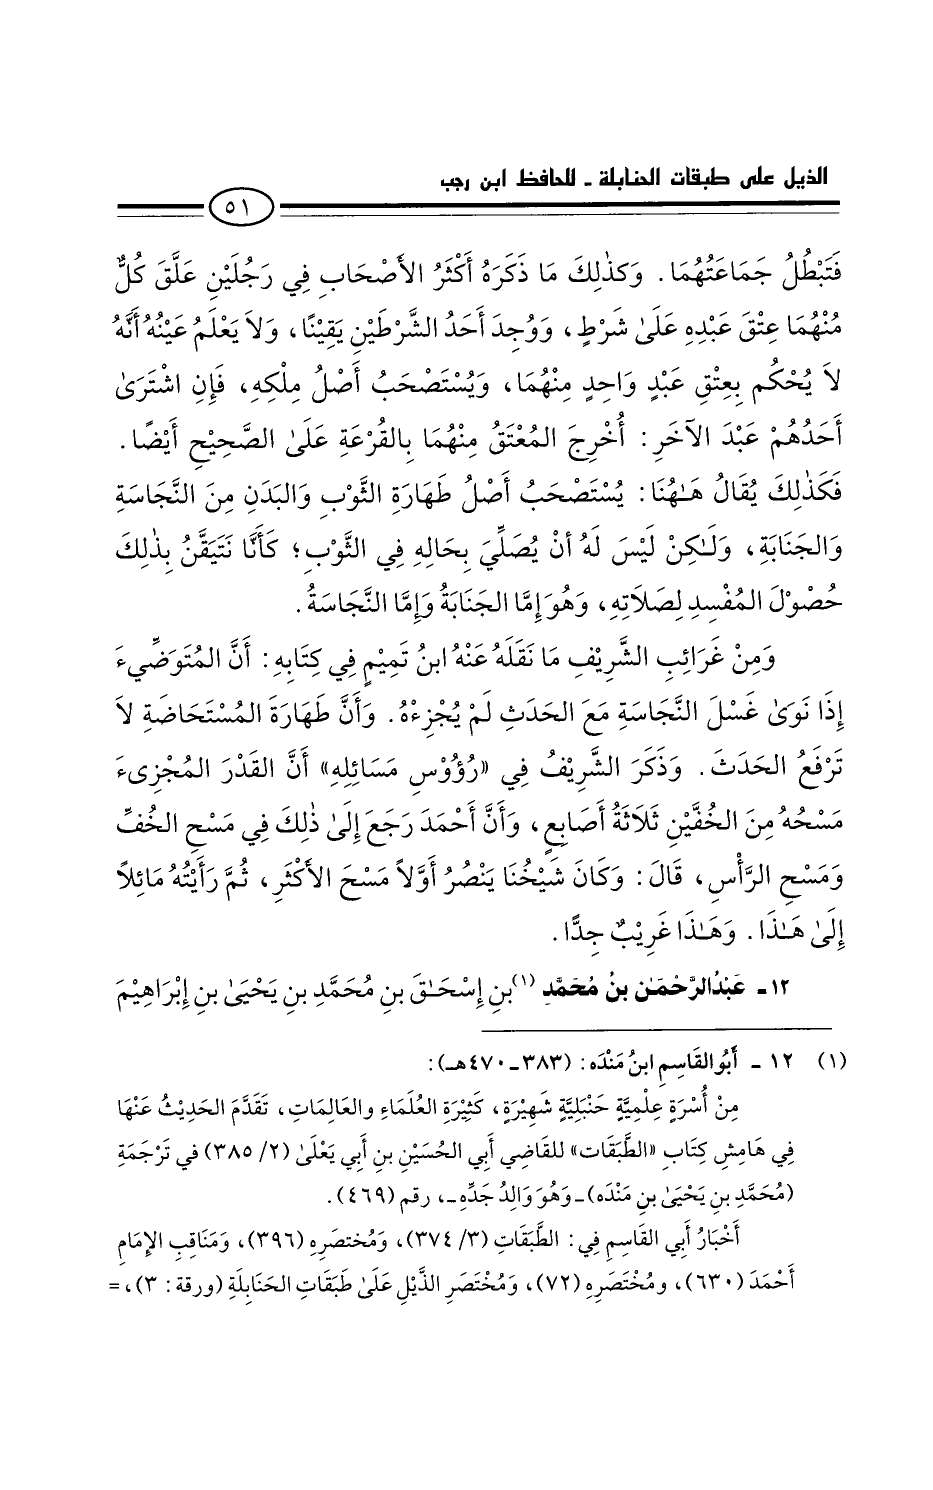 الذيل على طبقات الحنابلة ـ للحافظ ابن رجب
٥١
فَتَبْطُلُ جَمَاعَتُهُمَا. وَكَذٰلِكَ مَا ذَكَرَهُ أَكْثَرُ الأَصْحَابِ فِي رَجُلَيْنِ عَلَّقَ كُلٌّ
مِنْهُمَا عِتْقَ عَبْدِهِ عَلَىٰ شَرْطٍ، وَوُجِدَ أَحَدُ الشَّرْطَيْنِ يَقِيْنًا، وَلاَ يَعْلَمُ عَيْنُهُ أَنَّهُ
لاَ يُحْكُم بِعِتْقِ عَبْدٍ وَاحِدٍ مِنْهُمَا، وَيُسْتَصْحَبُ أَصْلُ مِلْكِهِ، فَإِنِ اشْتَرَىٰ
أَحَدُهُمْ عَبْدَ الآخَرِ: أُخْرِجَ المُعْتَقُ مِنْهُمَا بِالقُرْعَةِ عَلَىٰ الصَّحِيْحِ أَيْضًا.
فَكَذٰلِكَ يُقَالُ هَـٰهُنَا: يُسْتَصْحَبُ أَصْلُ طَهَارَةِ الثَّوْبِ وَالبَدَنِ مِنَ النَّجَاسَةِ
وَالجَنَابَةِ، وَلَـٰكِنْ لَيْسَ لَهُ أَنْ يُصَلِّيَ بِحَالِهِ فِي الثَّوْبِ؛ كَأَنَّا نَتَيَقَّنُ بِذٰلِكَ
حُصُوْلَ المُفْسِدِ لِصَلاَتِهِ، وَهُوَ إِمَّا الجَنَابَةُ وَإِمَّا النَّجَاسَةُ.
وَمِنْ غَرَائِبِ الشَّرِيْفِ مَا نَقَلَهُ عَنْهُ ابنُ تَمِيْمٍ فِي كِتَابِهِ: أَنَّ المُتَوَضِّيءَ
إِذَا نَوَىٰ غَسْلَ النَّجَاسَةِ مَعَ الحَدَثِ لَمْ يُجْزِءْهُ. وَأَنَّ طَهَارَةَ المُسْتَحَاضَةِ لاَ
تَرْفَعُ الحَدَثَ. وَذَكَرَ الشَّرِيْفُ فِي «رُؤُوْسِ مَسَائِلِهِ» أَنَّ القَدْرَ المُجْزِىءَ
مَسْحُهُ مِنَ الخُفَّيْنِ ثَلاَثَةُ أَصَابِعٍ، وَأَنَّ أَحْمَدَ رَجَعَ إِلَىٰ ذٰلِكَ فِي مَسْحِ الخُفِّ
وَمَسْحِ الرَّأْسِ، قَالَ: وَكَانَ شَيْخُنَا يَنْصُرُ أَوَّلاً مَسْحَ الأَكْثَرِ، ثُمَّ رَأَيْتُهُ مَائِلاً
إِلَىٰ هَـٰذَا. وَهَـٰذَا غَرِيْبٌ جِدًّا.
١٢ـ عَبْدُالرَّحْمَـٰنِ بنُ مُحَمَّدِ (١) بنِ إِسْحَـٰقَ بنِ مُحَمَّدِ بنِ يَحْيَىٰ بنِ إِبْرَاهِيْمَ
(١) ١٢ ـ أَبُو القَاسِمِ ابنُ مَنْدَه: (٣٨٣ـ٤٧٠هـ):
مِنْ أُسْرَةٍ عِلْمِيَّةٍ حَنْبَلِيَّةٍ شَهِيْرَةٍ، كَثِيْرَةِ العُلَمَاءِ والعَالِمَاتِ، تَقَدَّمَ الحَدِيْثُ عَنْهَا
فِي هَامِشِ كِتَابِ «الطَّبَقَات» للقَاضِي أَبي الحُسَيْنِ بنِ أَبي يَعْلَىٰ (٢/ ٣٨٥) في تَرْجَمَةِ
(مُحَمَّدِ بنِ يَحْيَىٰ بنِ مَنْدَه)ـ وَهُوَ وَالِدُ جَدِّهِ ـ، رقم (٤٦٩).
أَخْبَارُ أَبي القَاسِمِ فِي: الطَّبَقَاتِ (٣/ ٣٧٤)، وَمُختصَرِهِ (٣٩٦)، وَمَنَاقِبِ الإِمَامِ
أَحْمَدَ (٦٣٠)، ومُخْتَصَرِهِ (٧٢)، وَمُخْتَصَرِ الذَّيْلِ عَلَىٰ طَبَقَاتِ الحَنَابِلَةِ (ورقة: ٣)، =